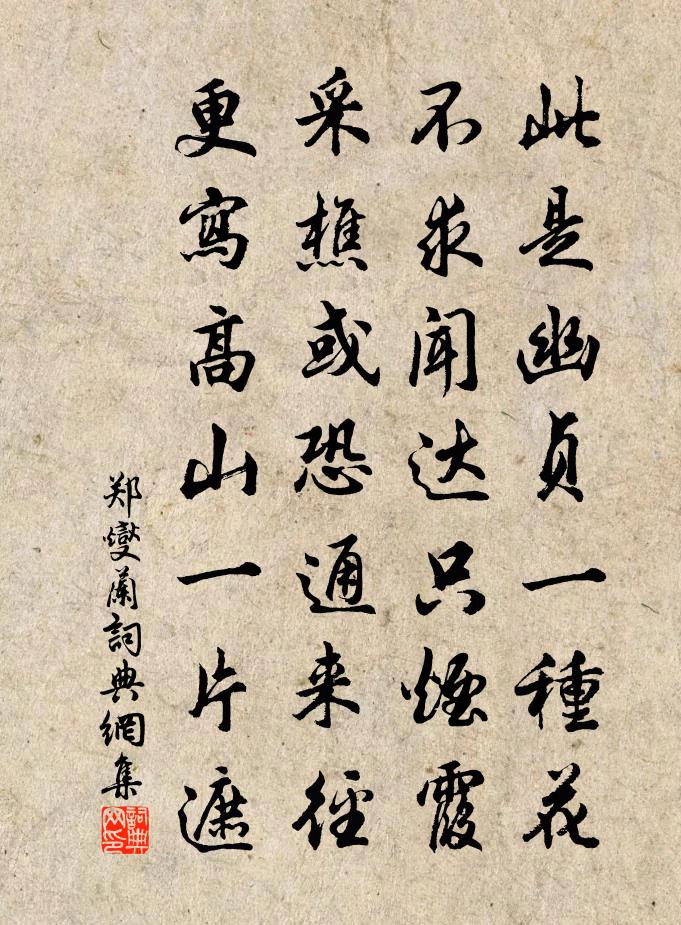 此是幽貞一種花
不求闻达只煙霞
采樵或恐通来徑
更寫高山一片遮
郑燮蘭詞典網集
詞典网印